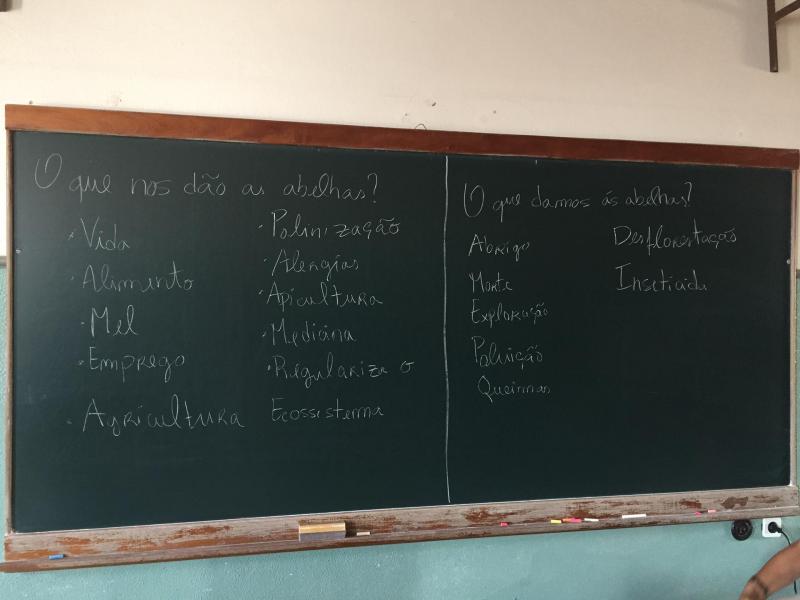 O que nos dão as abelhas?
Vida
Alimento
Mel
Emprego
Agricultura
Polinização
Alergias
Apicultura
Medicina
Regulariza o
Ecossistema
O que damos ás abelhas?
Abrigo
Morte
Exploração
Poluição
Queimas
Desflorestação
Inseticida